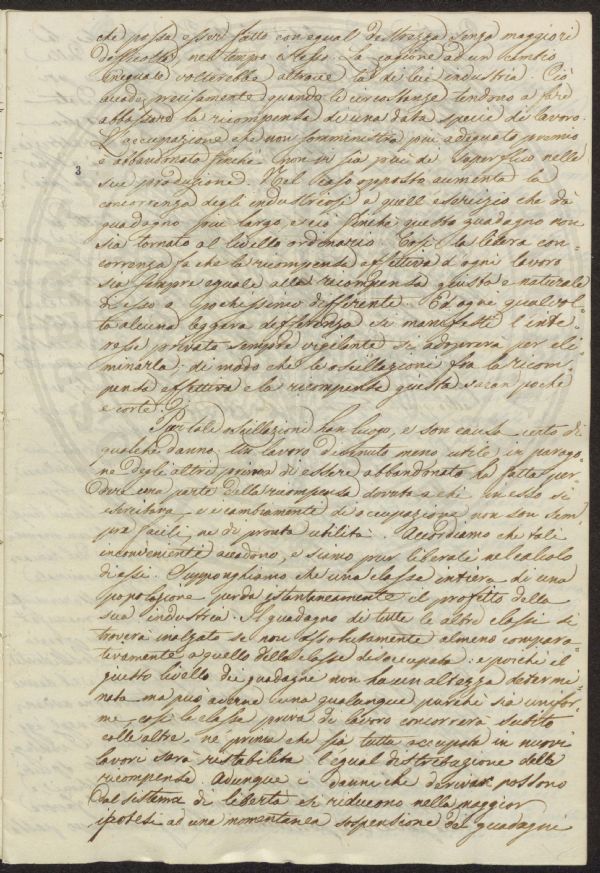 che possa esser fatto con egual destrezza senza maggiori
difficoltà nel tempo istesso. La cagione ad un cambio
ineguale volterebbe altrove la di lei industria. Ciò
accade precisamente quando le circostanze tendono a fare
abbassare la ricompensa di una data specie di lavoro.
L'occupazione che non somministra più adeguato premio
è abbandonata finchè non vi sia più di superfluo nelle
3
sue produzione. Nel caso opposto aumenta la
concorrenza degli industriosi a quell'esercizio che dà
guadagno più largo, e ciò finchè questo guadagno non
sia tornato al livello ordinario. Così la libera con-
correnza fa che la ricompensa effettiva d'ogni lavoro
sia sempre eguale alla ricompensa giusta e naturale
di esso o pochissimo differente. Ed ogni qual vol-
ta alcuna leggera differenza si manifesti l'inte-
resse privato sempre vigilante si adoprerà per eli-
minarla; di modo che le oscillazioni fra la ricom-
pensa effettiva e la ricompensa giusta saran poche
e corte.
Pur tale oscillazioni han luogo, e son causa certo di
qualche danno. Un lavoro divenuto meno utile in parago-
ne degli altri prima di essere abbandonato ha fatto per-
dere una parte della ricompensa dovuta a chi in esso si
esercitava, e i cambiamenti di occupazione non son sem-
pre facili, nè di pronta utilità. Accordiamo che tali
inconvenienti accadono, e siamo pur liberali nel calcolo
di essi. Supponghiamo che una classe intiera di una
popolazione perda istantaneamente il profitto della
sua industria. Il guadagno di tutte le altre classi si
troverà inalzato se non assolutamente almeno compara-
tivamente a quello della classe disoccupata: e poichè il
giusto livello dei guadagni non ha un'altezza determi-
nata ma può averne una qualunque purchè sia unifor-
me, così la classe priva di lavoro concorrerà subito
colle altre, nè prima che sia tutta occupata in nuovi
lavori sarà ristabilita l'egual distribuzione delle
ricompense. Adunque i danni che derivar possono
dal sistema di libertà si riducono nella maggior
ipotesi ad una momentanea sospensione del guadagni